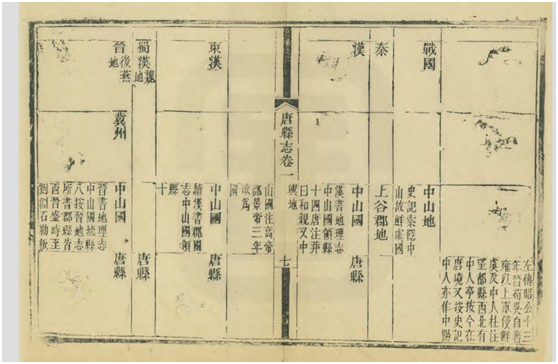 左傳昭公十三
年晉荀吳自著
雍以上軍侵鮮
虞及中人杜注
望都縣西北有
中人亭按今在
唐境又按史記
中人亦作中陽
戰國
中山地
史記索隱中
山故鮮虞國
秦
上谷郡地
漢
中山國
唐縣
漢書地理志
中山國領縣
十四唐注莽
曰和親又中
唐縣志卷一
輿地
七
山國注高帝
郡景帝三年
改爲
國
東漢
中山國
唐縣
續漢書郡國
志中山國領
縣
十
蜀漢
魏地
唐縣
晉
後燕地
冀州
中山國
唐縣
晉書地理志
中山國統縣
八按晉地志
所書郡縣皆
西晉盛時至
劉淵石勒叛